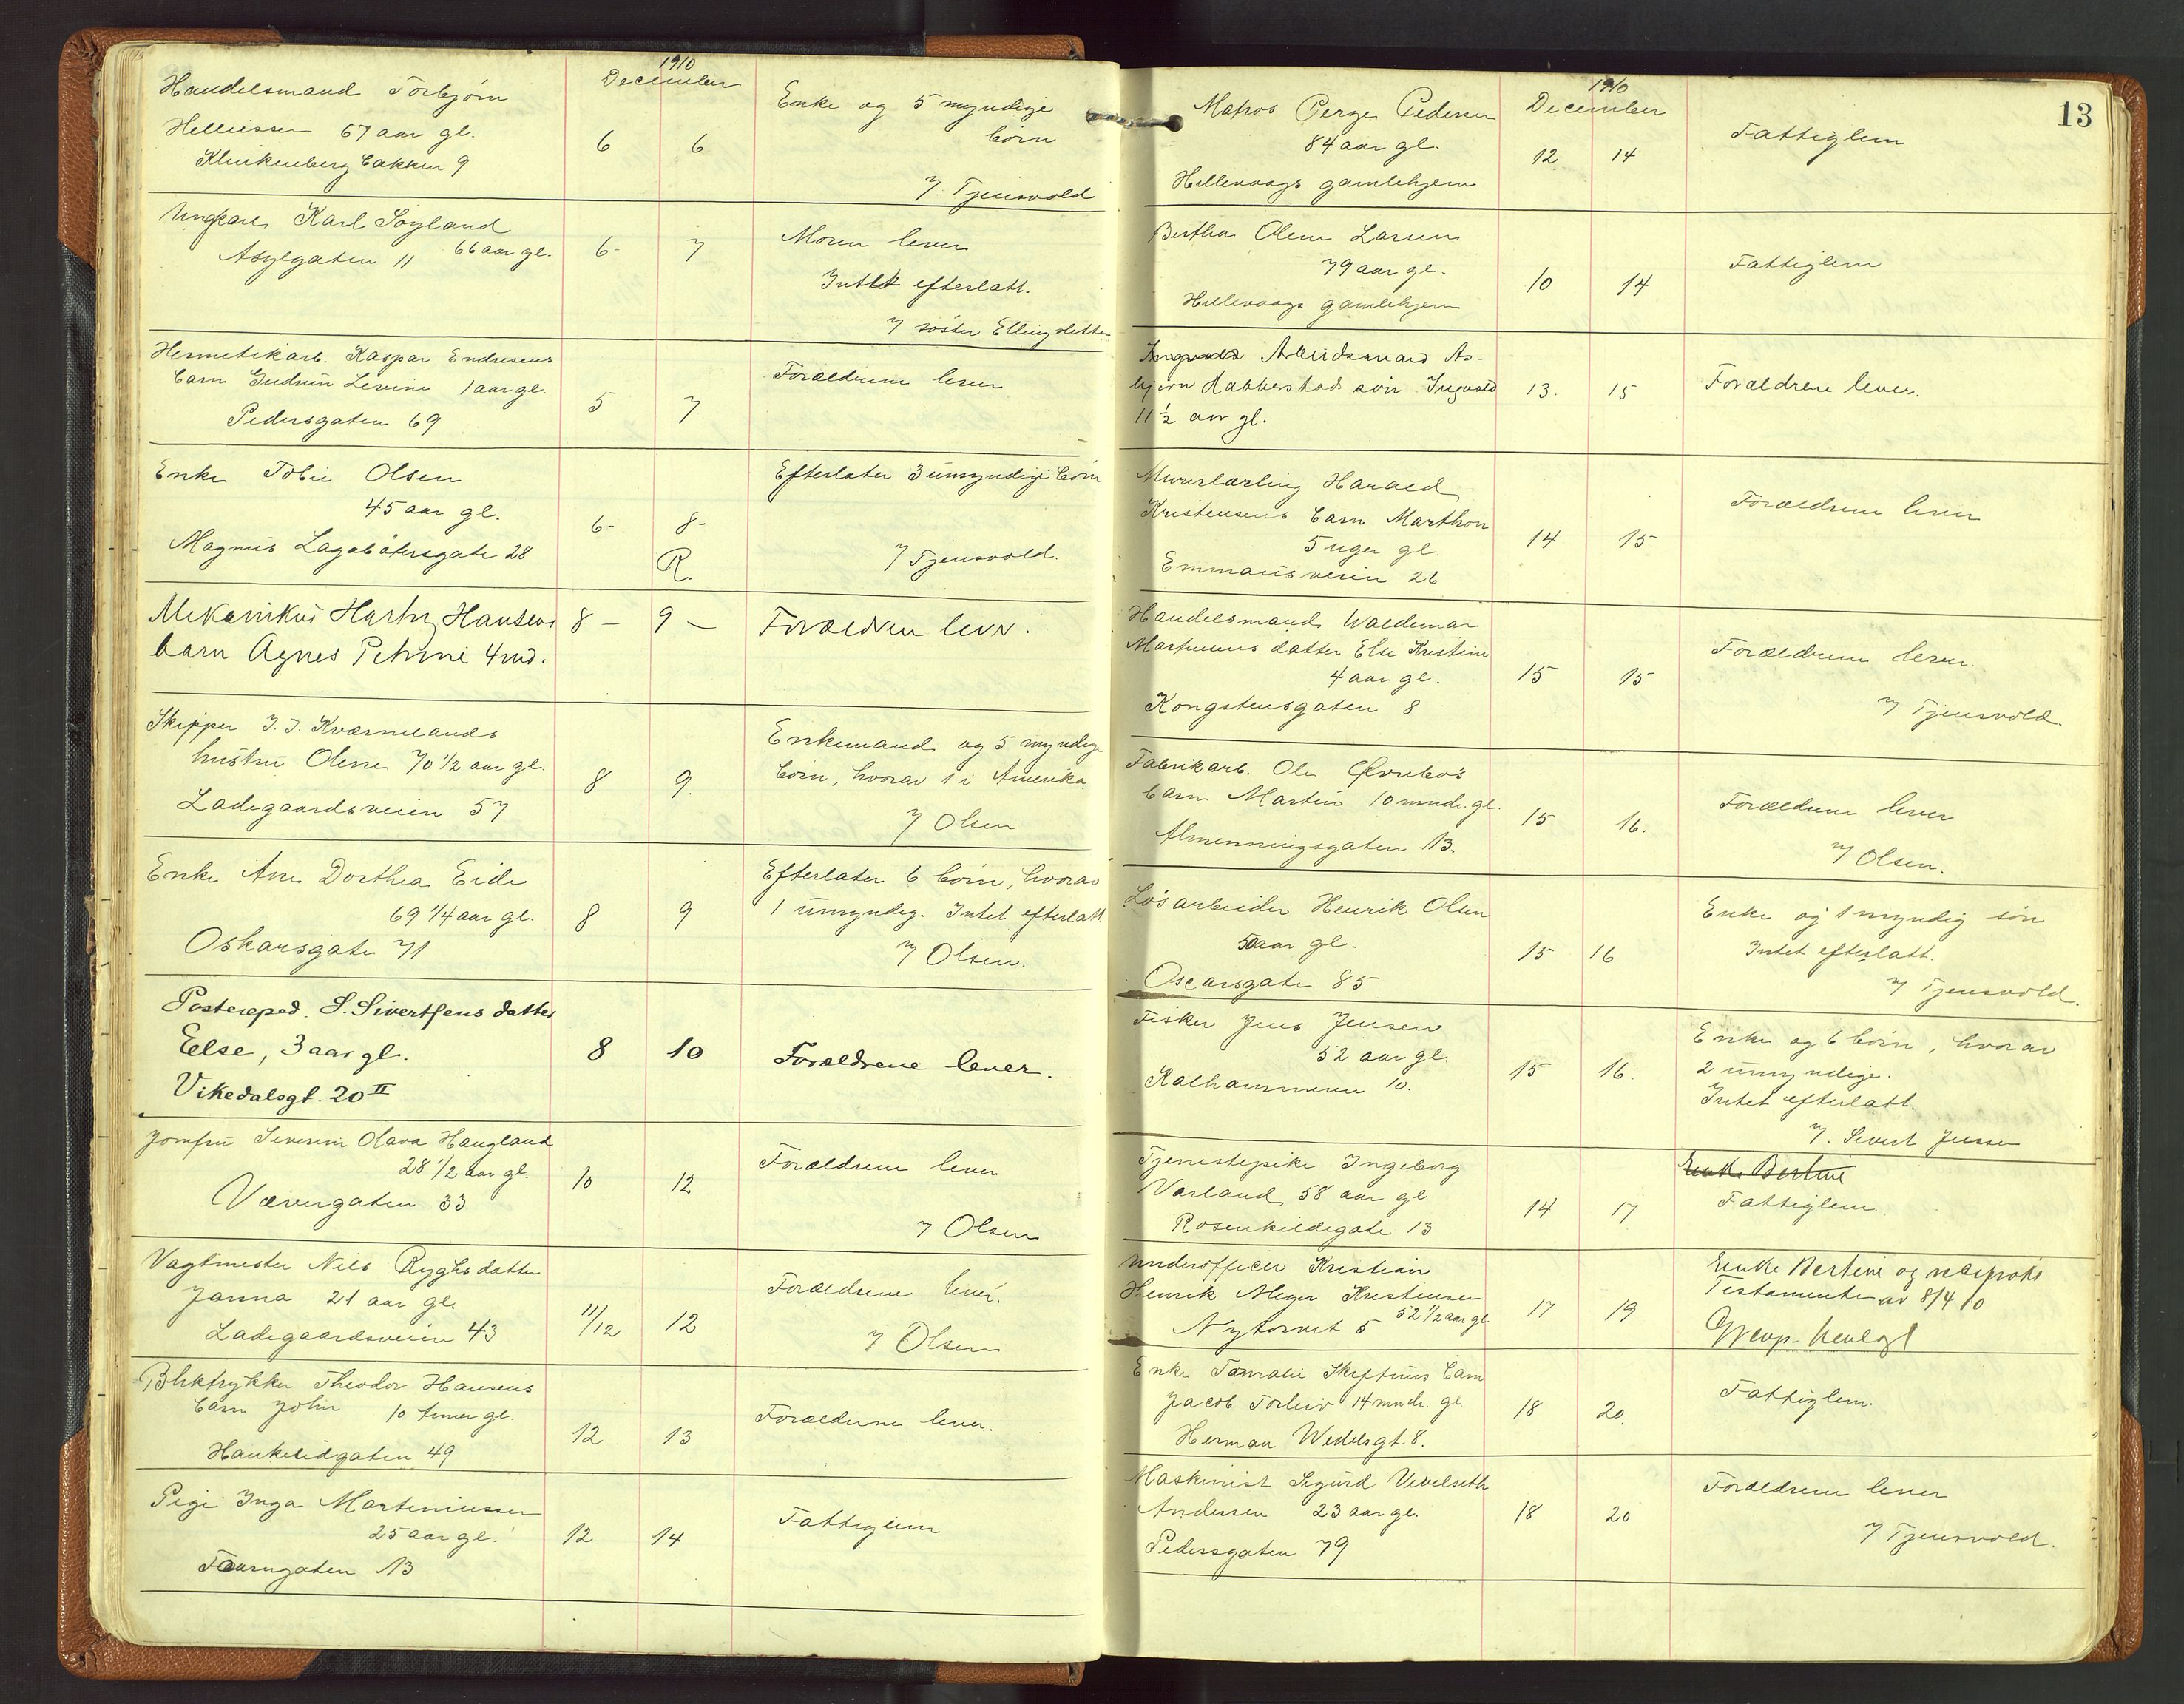 1910
December
Handelsmand Torbjørn
Helliesen 67 aar gl.
Klinkenberg bakken 9
6 6
Enke og 5 myndige
börn
Tjensvold
Ungkarl Karl Söyland
66 aar gl.
Asylgaten 11
6- 7
Moren lever
Intet efterlatt.
söster Ellingsletten
Hermetikarb. Kaspar Endresens
barn Gudrun Levine 1 aar gl.
Pedersgaten 69
5 7
Forældrene lever
Enke Tobie Olsen
45 aar gl.
Magnus Lagabötersgate 28
6- 8-
R.
Efterlater 3 umyndige börn
Tjensvold.
Mekanikus Hansens
barn Agnes Petrine 4 md.
8 - 9 -
Forældren lever.
Skipper J. J. Kværnelands
hustru Oline 70 1/2 aar gl.
Ladegaardsveien 57
8 9.
Enkemand og 5 myndige
börn, hvorav 1 i Amerika
Olsen
Enke Ane Dorthea Eide
69 1/4 aar gl.
Oskarsgate 71
8 9
Efterlater 6 börn, hvorav
1 umyndig. Intet efterlatt.
Olsen.
Postexped. S. Sivertsens datter
Else, 3 aar gl.
Vikedalsgt. 20 II
8 10
Forældrene lever.
Jomfru Severine Olava Haugland
28 1/2 aar gl.
Vævergaten 33
10 12
Forældrene lever
Olsen
Vagtmester Nils Ryghs datter
Janna 21 aar gl.
Ladegaardsveien 43
11/12 12
Forældrene lever.
Olsen
Bliktrykker Theodor Hansens
barn John 10 timer gl.
Haukelidgaten 49
12 13
Forældrene lever.
Pige Inga Marteniussen
25 aar gl.
Taarngaten 13
12 14
Fattiglem
13
1910
December
Matros Pedersen
84 aar gl.
Hillevaags gamlehjem
12 14
Fattiglem
Bertha Oline Larsen
79 aar gl.
Hillevaags gamlehjem
10 14
Fattiglem
Ingvald Arbeidsmand As-
björn Rabberstad sön Ingvald
11 1/2 aar gl.
13. 15
Forældrene lever.
Murerlærling Harald
Kristensens barn Marthon
5 uger gl.
Emmausveien 26
14 15
Forældrene lever
Handelsmand Waldemar
Martinsens datter Else Kristine
4 aar gl.
Kongstensgaten 8
15 15
Forældrene lever.
Tjensvold
Fabrikarb. Ole Øvrebö's
barn Martin 10 mndr. gl.
Almenningsgaten 13.
15 16.
Forældrene lever
Olsen.
Lösarbeider Henrik Olsen
50 aar gl.
Oscarsgate 85
15 16
Enke og 1 myndig sön
Intet efterlatt.
Tjensvold.
Fisker Jens Jensen
52 aar gl.
Kalhammeren 10.
15 16.
Enke og 6 börn, hvorav
2 umyndige.
Intet efterlatt.
Sivert Jensen
Tjenestepike Ingeborg
Varland 58 aar gl
Rosenkildegate 13
14 17
Enke Bertine
Fattiglem
Underofficer Kristian
Henrik Meyer Kristensen
52 1/2 aar gl
Nytorvet 5
17 19
Enke Bertine og
Testamente av 8/4 10
Enke Tomalie Skiftuns barn
Jacob Torleiv 14 mndr. gl.
Herman Wedelsgt. 8.
18 20.
Fattiglem.
Maskinist Sigurd Vevelseth
Andersen 23 aar gl.
Pedersgaten 79
18 20
Forældrene lever
Tjensvold.